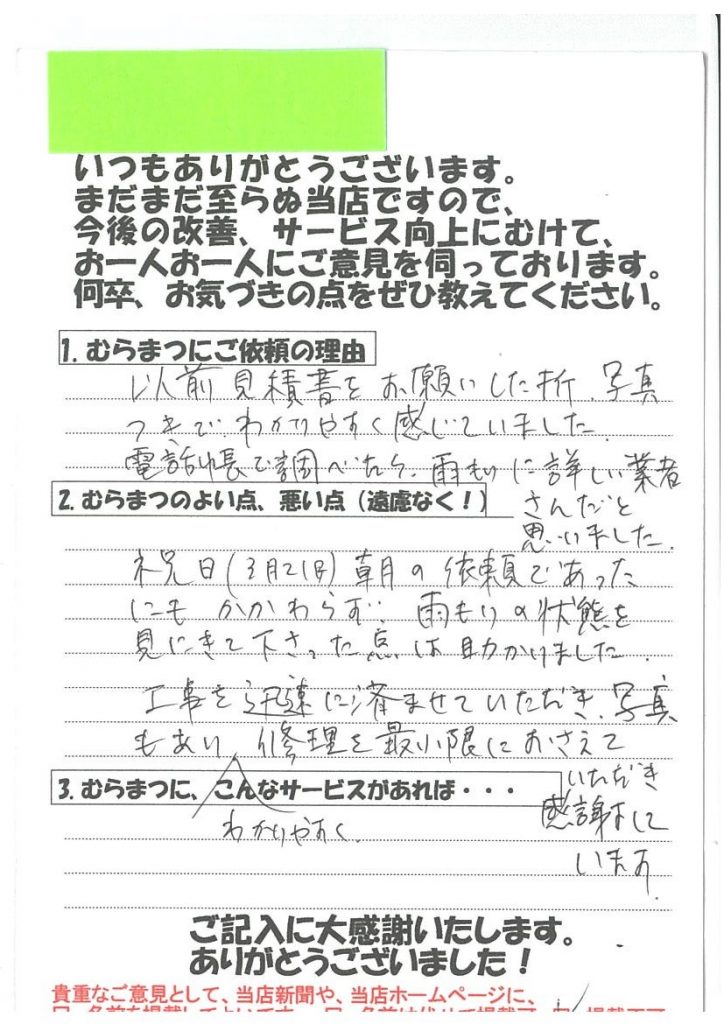 いつもありがとうございます。
まだまだ至らぬ当店ですので、
今後の改善、サービス向上にむけて、
お一人お一人にご意見を伺っております。
何卒、お気づきの点をぜひ教えてください。
1. むらまつにご依頼の理由
以前見積書をお願いした折、写真
つきで、わかりやすく感じていました。
電話帳で調べたら、雨もりに詳しい業者
さんだと
思いました。
2. むらまつのよい点、悪い点（遠慮なく！）
祝日(3月21日)朝の依頼であった
にもかかわらず、雨もりの状態を
見にきて下さった点は助かりました。
工事を迅速に済ませていただき、写真
もあり、修理を最小限におさえて
いただき
感謝して
います。
わかりやすく、
3. むらまつに、こんなサービスがあれば・・・
ご記入に大感謝いたします。
ありがとうございました！
貴重なご意見として、当店新聞や、当店ホームページに、